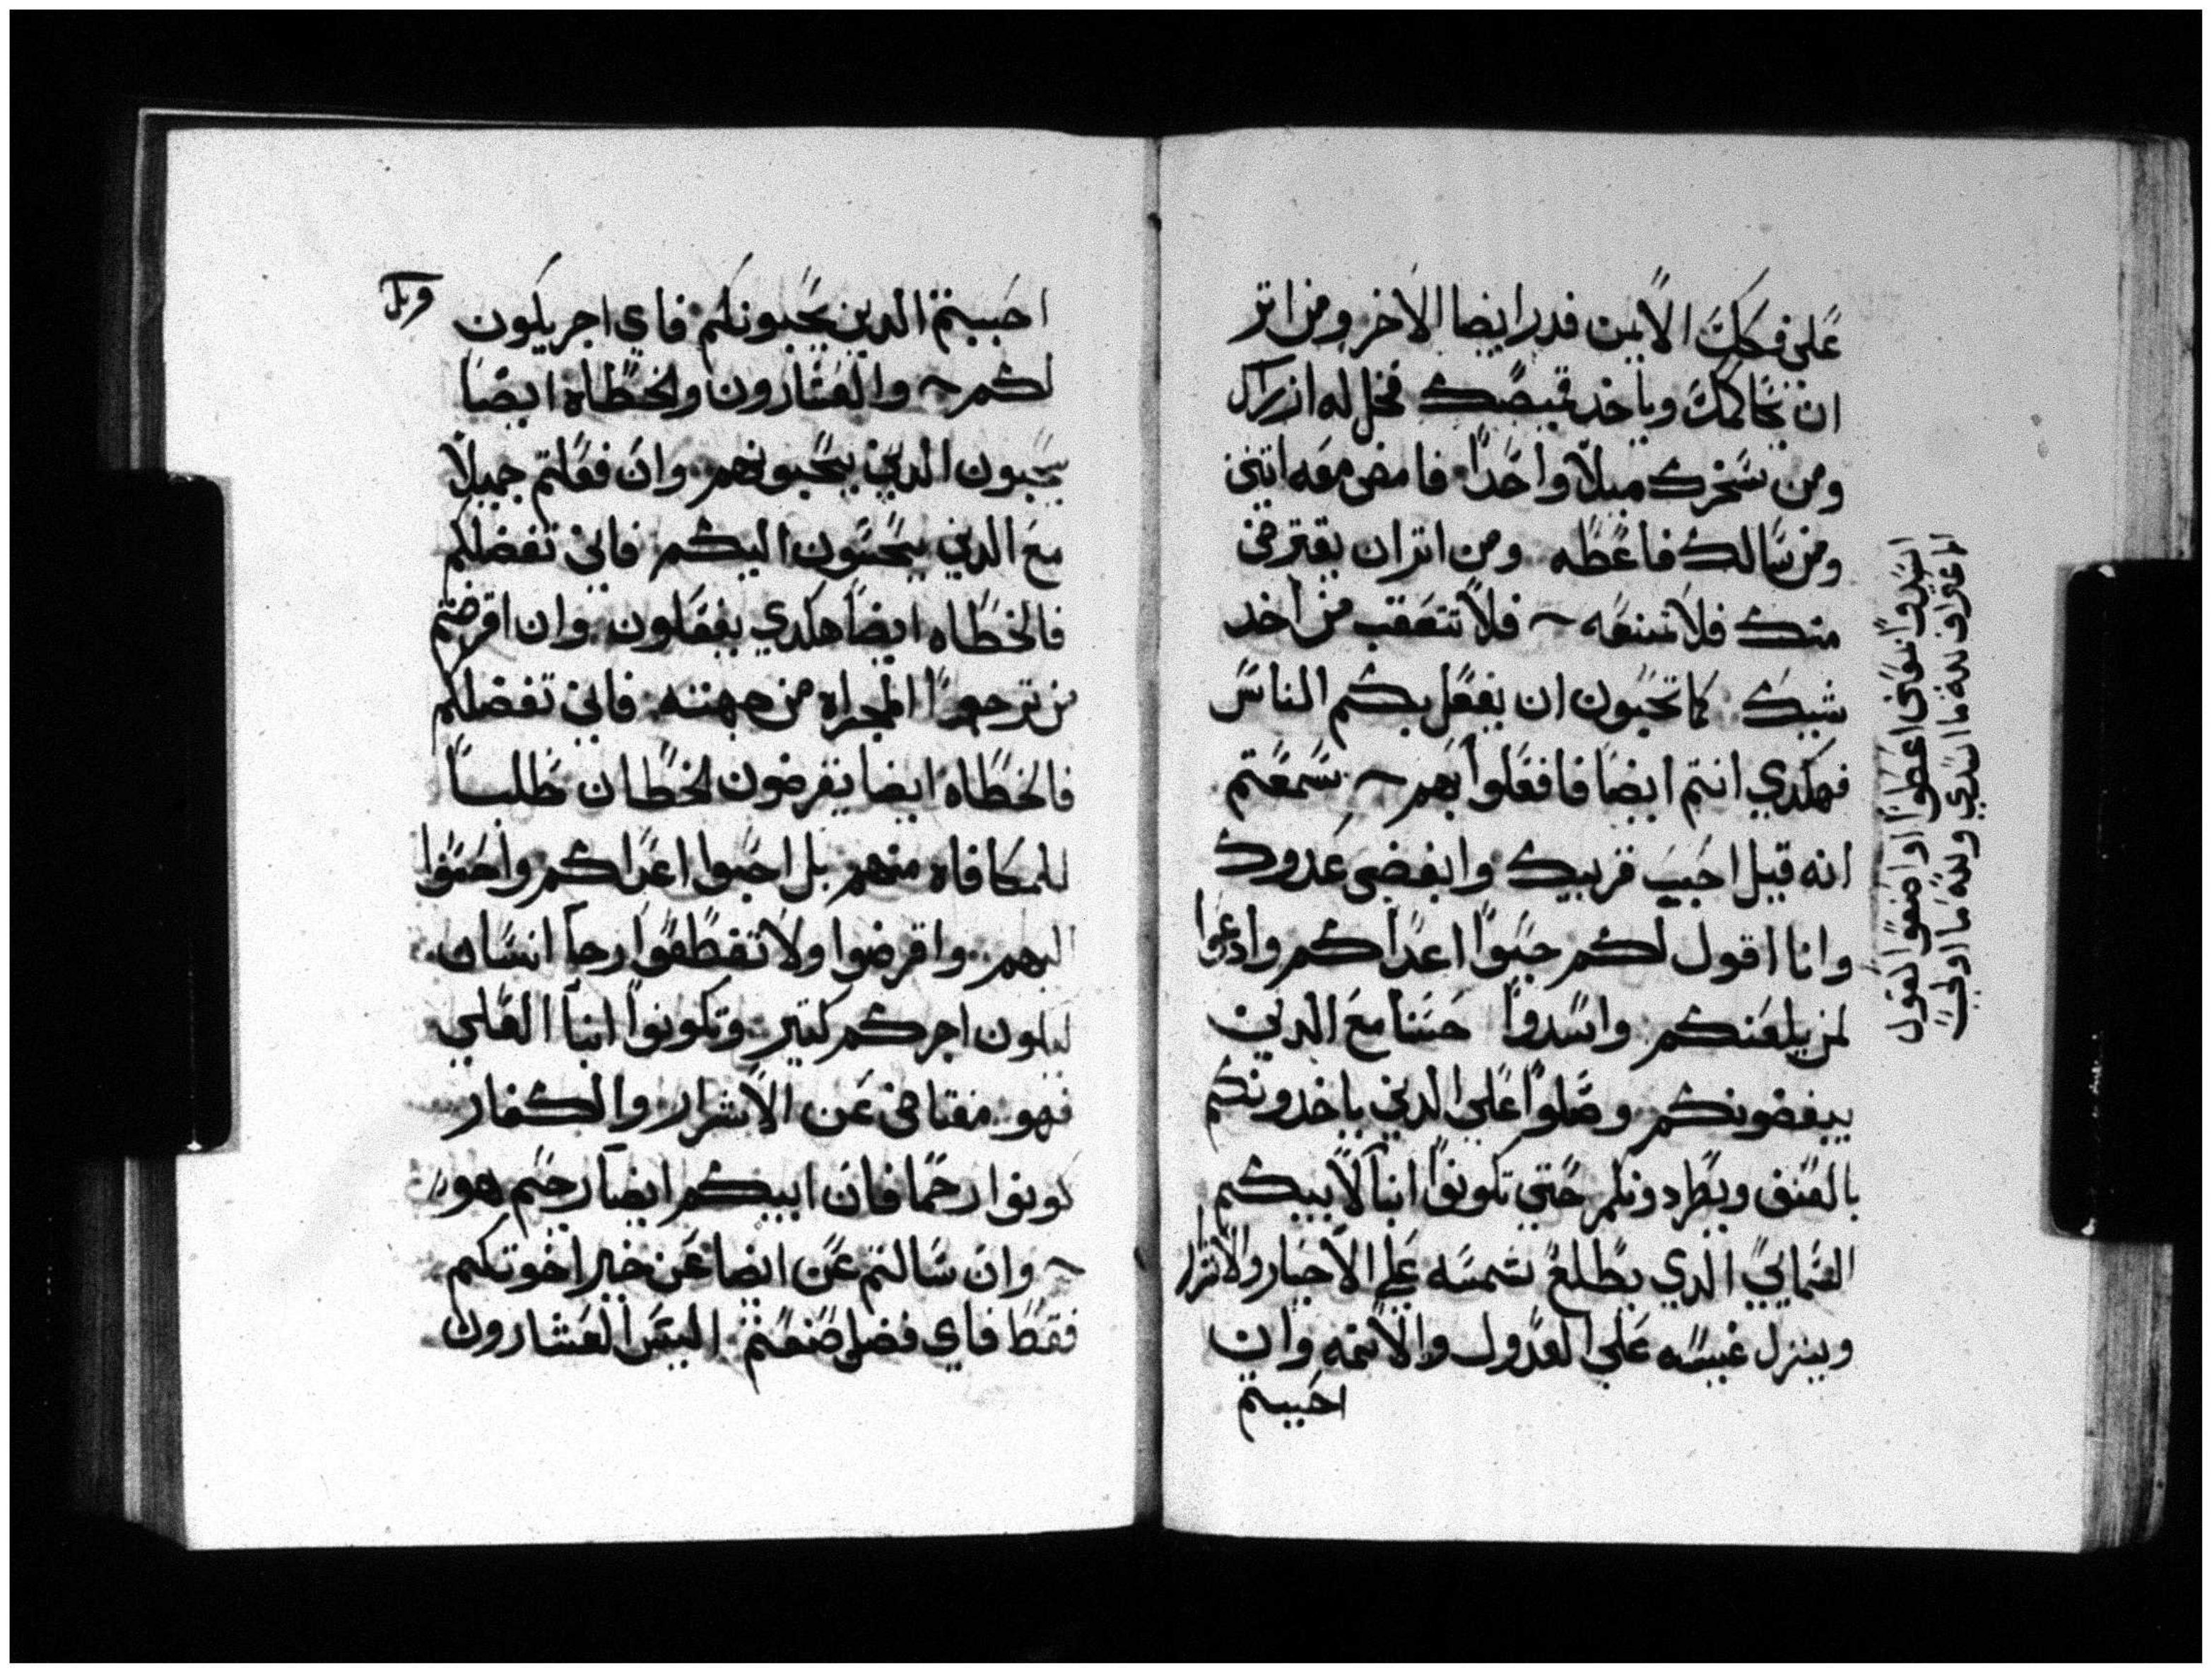 على فكك الايمن فدر ايضا الاخر ومن اثر
ان يخاكمك وياخد قميصك فخل له ازراك
ومن سخرك ميلا واحدا فامض معه اتنين
ومن سالك فاعطه ومن اثر ان يقترض
منك فلا تمنعه فلا تتعقب من اخد
شيك كما تحبون ان يفعل بكم الناس
فهكدي انتم ايضا فافعلوا بهم سمعتم
انه قيل احبب قريبك وابغض عدوك
وانا اقول لكم حبوا اعداكم وادعوا
لمن يلعنكم واسدوا حسنا مع الدين
يبغضونكم وصلوا على الدين ياخدونكم
بالعنف ويطردونكم حتي تكونوا ابنا لابيكم
السمايي الدي يطلع شمسه علي الاخيار والاشرار
وينزل غيسه علي العدول والاتمه وان
احببتم
اسدوا
احببتم الدين يحبونكم فاي اجر يكون
لكم والعشارون والخطاه ايضا
يحبون الدين يحبونهم وان فعلتم جميلا
مع الدين يحسنون اليكم فاين تفضلكم
فالخطاه ايضا هكدي يفعلون وان اقرضتم
من ترجوا المجراه من جهته فاين تفضلكم
فالخطاه ايضا يقرضون لخطاه طلبا
للمكافاه منهم بل احبوا اعداكم واحسنوا
اليهم واقرضوا ولا تقطعوا رجا انسان
ليكون اجركم كتير وتكونوا ابنا العلي
فهو متفاضي عن الاشرار والكفار
كونوا رحما فان ابيكم ايضا رحيم هو
وان سالتم عن ايضا عن خير اخوتكم
فقط فاي فضل صنعتم اليس العشارون